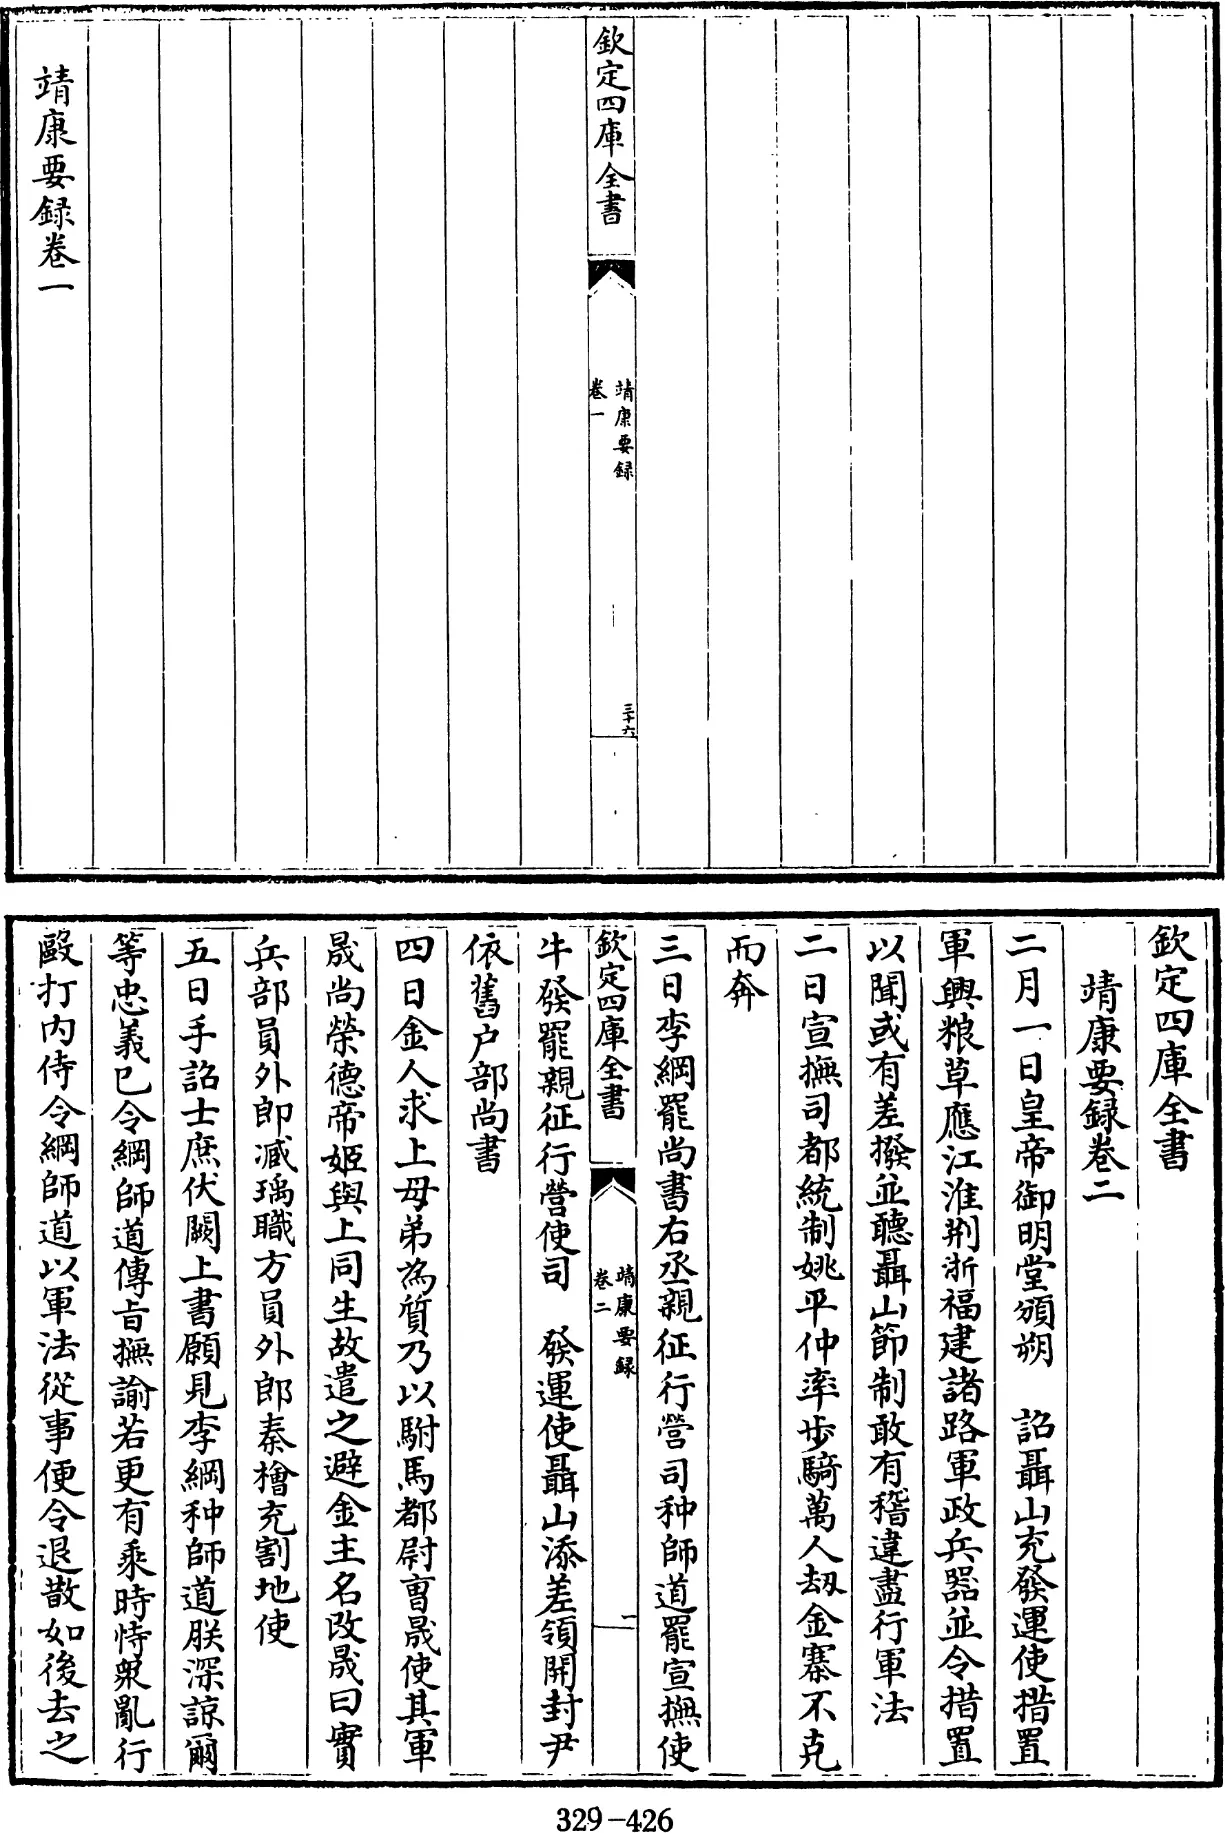 欽定四庫全書
靖康要録
卷一
三十六
靖康要録卷一
欽定四庫全書
靖康要録卷二
二月一日皇帝御明堂頒朔 詔聶山充發運使措置
軍興粮草應江淮荆浙福建諸路軍政兵器並令措置
以聞或有差撥並聽聶山節制敢有稽違盡行軍法
二日宣撫司都統制姚平仲率步騎萬人刼金寨不克
而奔
三日李綱罷尚書右丞親征行營司种師道罷宣撫使
欽定四庫全書
靖康要録
卷二
一
牛發罷親征行營使司 發運使聶山添差領開封尹
依舊户部尚書
四日金人求上母弟為質乃以駙馬都尉曹晟使其軍
晟尚榮德帝姬與上同生故遣之避金主名改晟曰實
兵部員外郎臧瑀職方員外郎秦檜充割地使
五日手詔士庶伏闕上書願見李綱种師道朕深諒爾
等忠義已令綱師道傳旨撫諭若更有乘時恃衆亂行
毆打内侍令綱師道以軍法從事便令退散如後去之
329-426